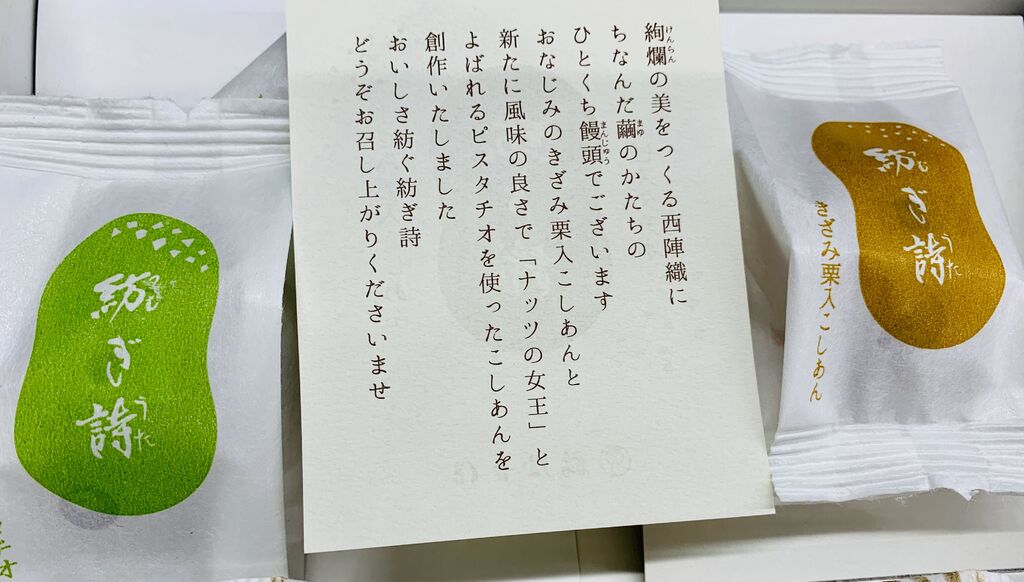 絢爛の美をつくる西陣織に
ちなんだ繭のかたちの
ひとくち饅頭でございます
おなじみのきざみ栗入こしあんと
新たに風味の良さで「ナッツの女王」と
よばれるピスタチオを使ったこしあんを
創作いたしました
おいしさ紡ぐ紡ぎ詩
どうぞお召し上がりくださいませ
紡ぎ詩
きざみ栗入こしあん
紡ぎ詩